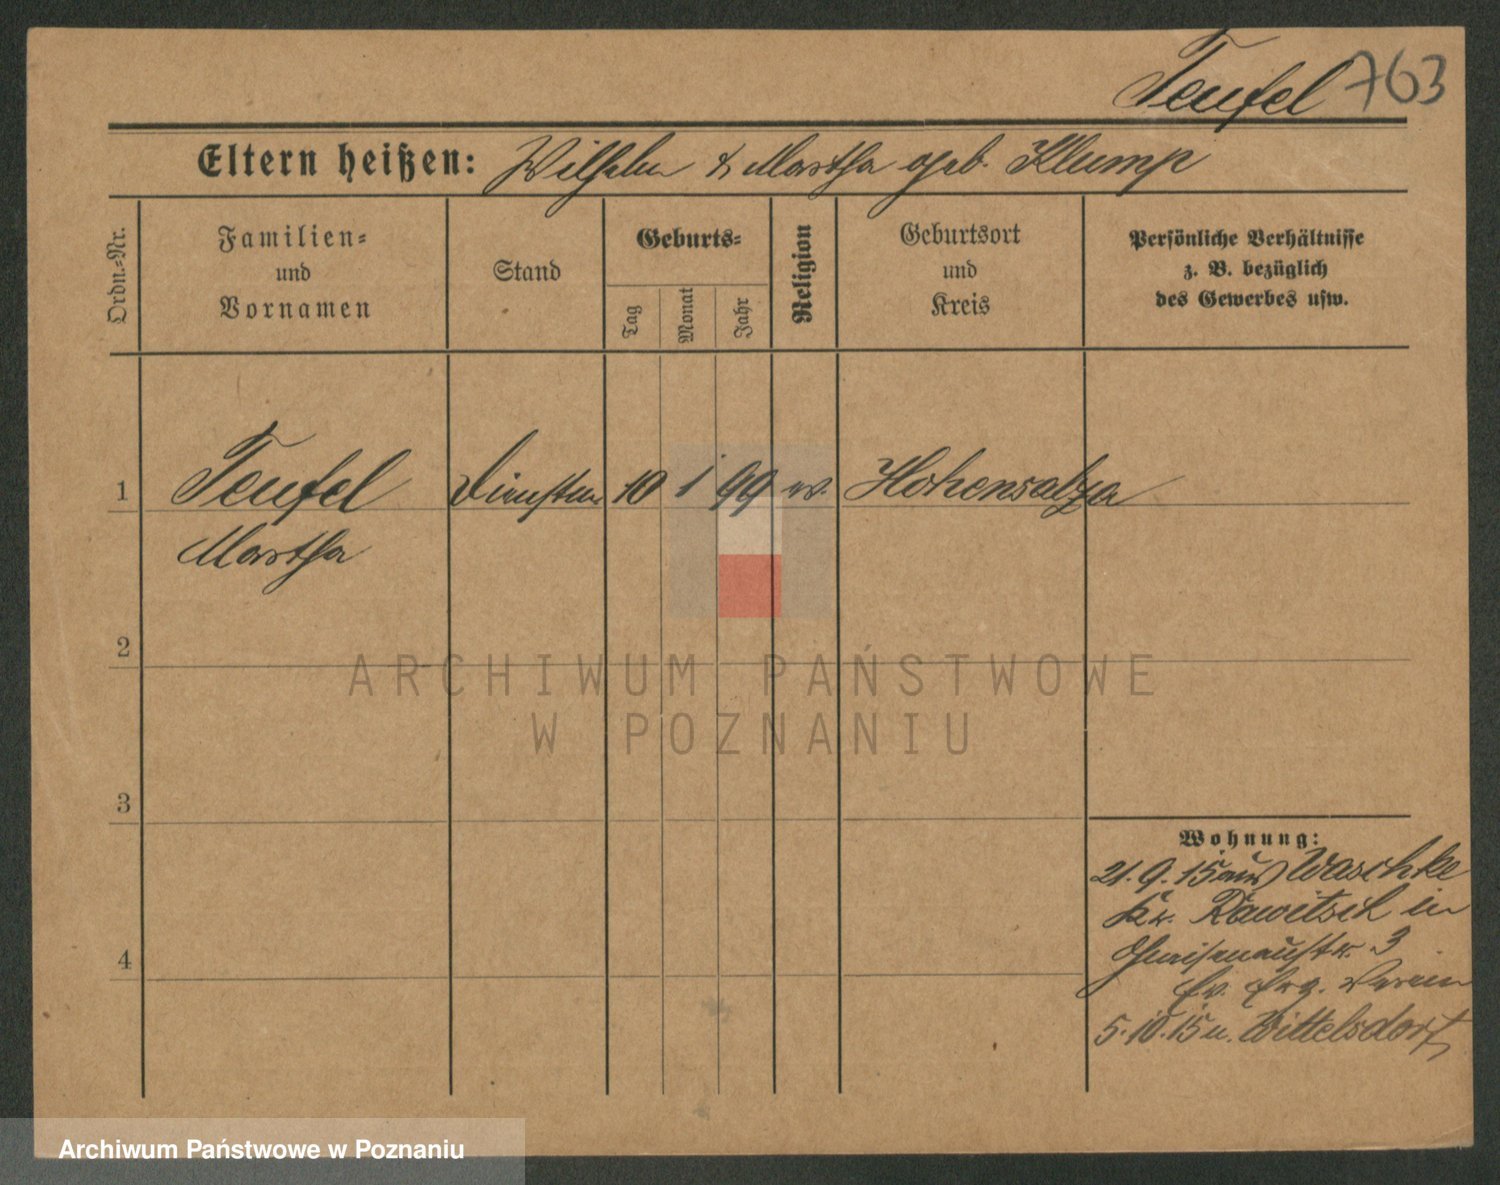 Teufel 763
Eltern heißen: Wilhelm & Martha geb. Klump
Ordn.-Nr.
Familien-
und
Vornamen
Stand
Geburts-
Tag
Monat
Jahr
Religion
Geburtsort
und
Kreis
Persönliche Verhältnisse
z. B. bezüglich
des Gewerbes usw.
1 Teufel 10 1 99 ev. Hohensalza
Martha
2
3
4
Wohnung:
21.9.15 aus Waschke
Kr. Rawitsch in
Gneisenaustr. 3
Ev. Erz. Verein
5.10.15 n. Wittelsdorf
ARCHIWUM PAŃSTWOWE
W POZNANIU
Archiwum Państwowe w Poznaniu